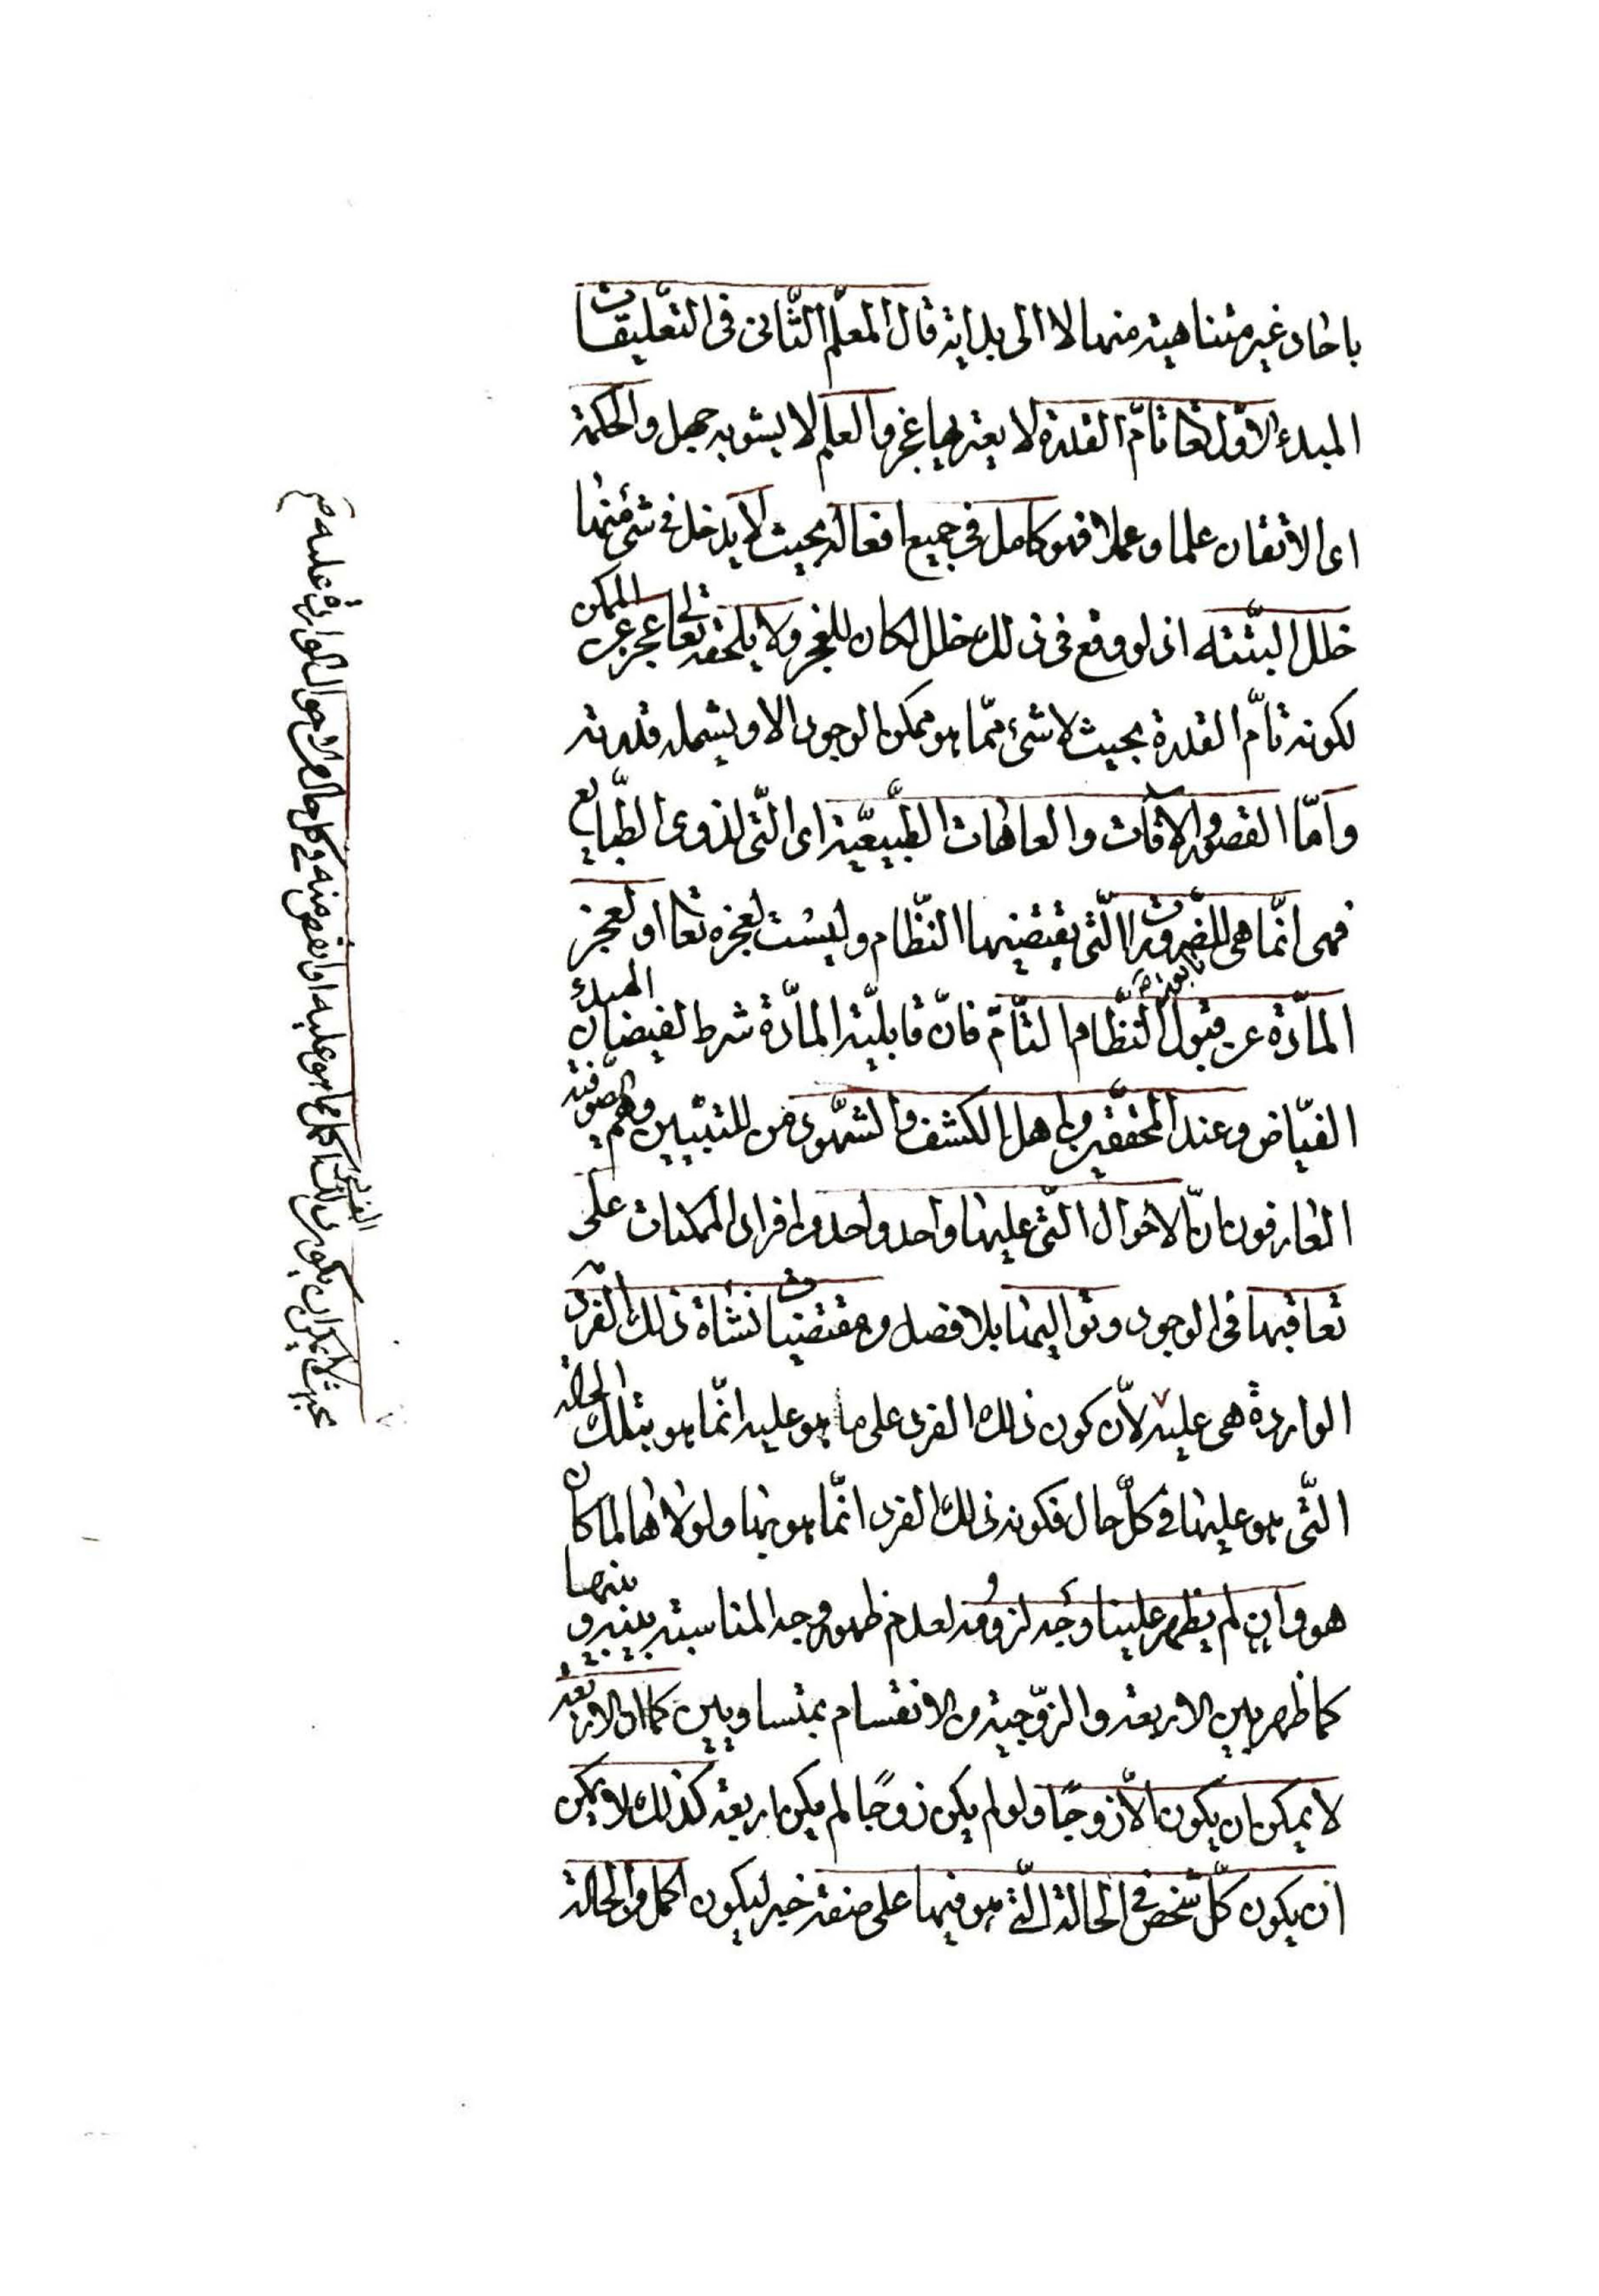 باحاد غير متناهية منها لا الى بداية قال المعلّم الثّانى فى التعّليقات
المبدء الاوّل تعا تامّ القدرة لا يعتريها عجز والعلم لا يشوبه جهل والحكمة
اى الاتقان علما وعملا فهو كامل فى جميع افعاله بحيث لا يدخل فى شئ منها
خلل البتّته اذ لو وقع فى ذلك خلل لكان للعجز ولا يلحقه تعالى عجز عن الممكن
لكونه تامّ القدرة بحيث لا شئ ممّا هو ممكن الوجود الا ويشمله قدرته
وامّا القصور والافات والعاهات الطّبيعيّة اى الّتى لذوى الطّبايع
فهى انّما هى للضّرورات الّتى يقتضيها النّظام وليست لعجزه تعا او لعجز
المادّة عن قبول النّظام التّامّ فانّ قابليّة المادّة شرط لفيضان المبدء
الفيّاض وعند المحققين من اهل الكشف والشهود من المتبيين وهم الصّوفيّة
العارفون انّ الاحوال الّتى عليها واحد واحد من افراد الممكنات على
تعاقبها فى الوجود وتواليها بلا فصل من مقتضيات نشاة ذلك الفرد
الواردة هى عليه لانّ كون ذلك الفرد على ما هو عليه انّما هو بتلك الحالة
الّتى هو عليها فى كلّ حال فكونه ذلك الفرد انّما هو بها ولولاها لما كان
هو وان لم يظهر علينا وجه لزومه لعدم ظهور وجه المناسبة بينه وبينها
كما ظهر بين الاربعة والزّوجية من الانقسام بمتساويين كما ان الاربعة
لا يمكن ان يكون الّا زوجًا ولو لم يكن زوجًا لم يكن اربعة كذلك لا يمكن
ان يكون كلّ شخص فى الحالة الّتى هو فيها على صفة خير ليكون اكمل من الحالة
بحيث لا يمكن ان يكون ذلك الفرد اكمل مما هو عليه او انقص منه فى كل حال من الاحوال الواردة عليه صح